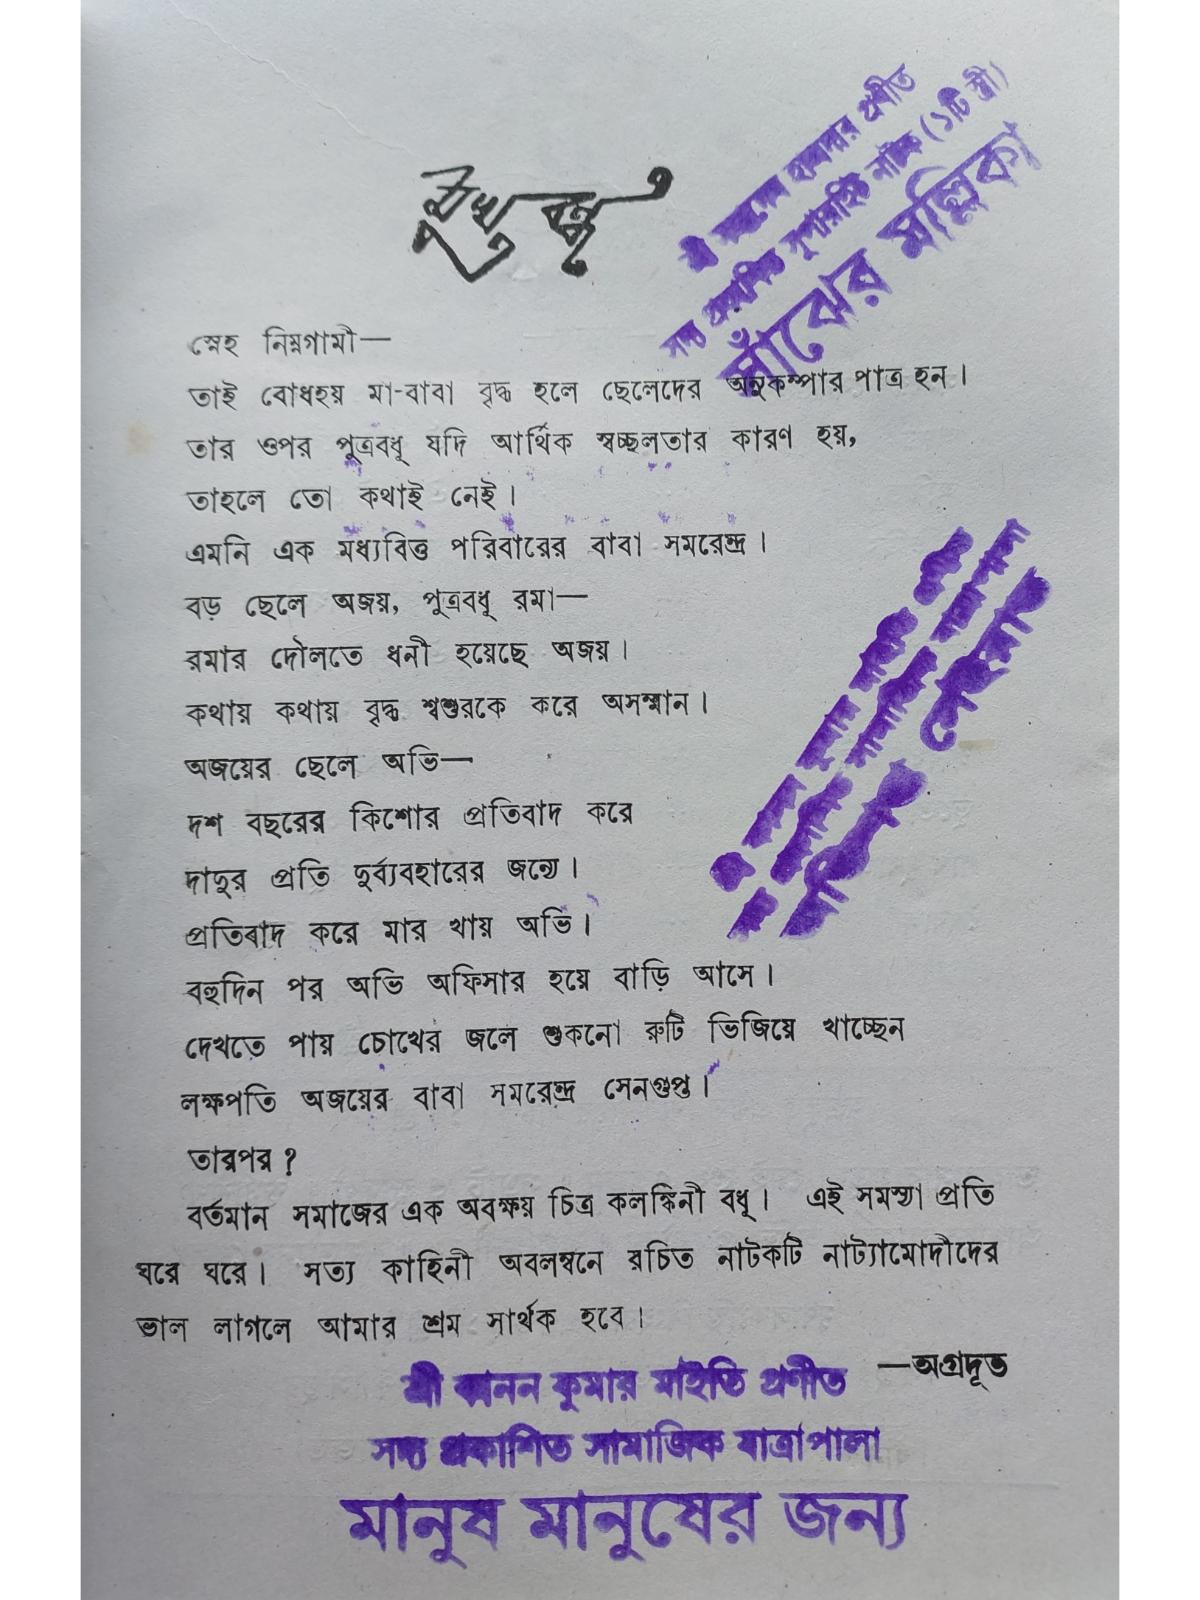 মুখবন্ধ
প্রণীত
সদ্য প্রকাশিত সুপারহিট নাটক (১টি স্ত্রী)
সাঁঝের মল্লিকা
স্নেহ নিম্নগামী—
তাই বোধহয় মা-বাবা বৃদ্ধ হলে ছেলেদের অনুকম্পার পাত্র হন।
তার ওপর পুত্রবধূ যদি আর্থিক স্বচ্ছলতার কারণ হয়,
তাহলে তো কথাই নেই।
এমনি এক মধ্যবিত্ত পরিবারের বাবা সমরেন্দ্র।
বড় ছেলে অজয়, পুত্রবধূ রমা—
রমার দৌলতে ধনী হয়েছে অজয়।
কথায় কথায় বৃদ্ধ শ্বশুরকে করে অসম্মান।
অজয়ের ছেলে অভি—
দশ বছরের কিশোর প্রতিবাদ করে
দাদুর প্রতি দুর্ব্যবহারের জন্যে।
প্রতিবাদ করে মার খায় অভি।
বহুদিন পর অভি অফিসার হয়ে বাড়ি আসে।
দেখতে পায় চোখের জলে শুকনো রুটি ভিজিয়ে খাচ্ছেন
লক্ষপতি অজয়ের বাবা সমরেন্দ্র সেনগুপ্ত।
তারপর?
বর্তমান সমাজের এক অবক্ষয় চিত্র কলঙ্কিনী বধূ। এই সমস্যা প্রতি
ঘরে ঘরে। সত্য কাহিনী অবলম্বনে রচিত নাটকটি নাট্যামোদীদের
ভাল লাগলে আমার শ্রম সার্থক হবে।
—অগ্রদূত
শ্রী কুমার মাইতি প্রণীত
সদ্য প্রকাশিত সামাজিক যাত্রাপালা
মানুষ মানুষের জন্য